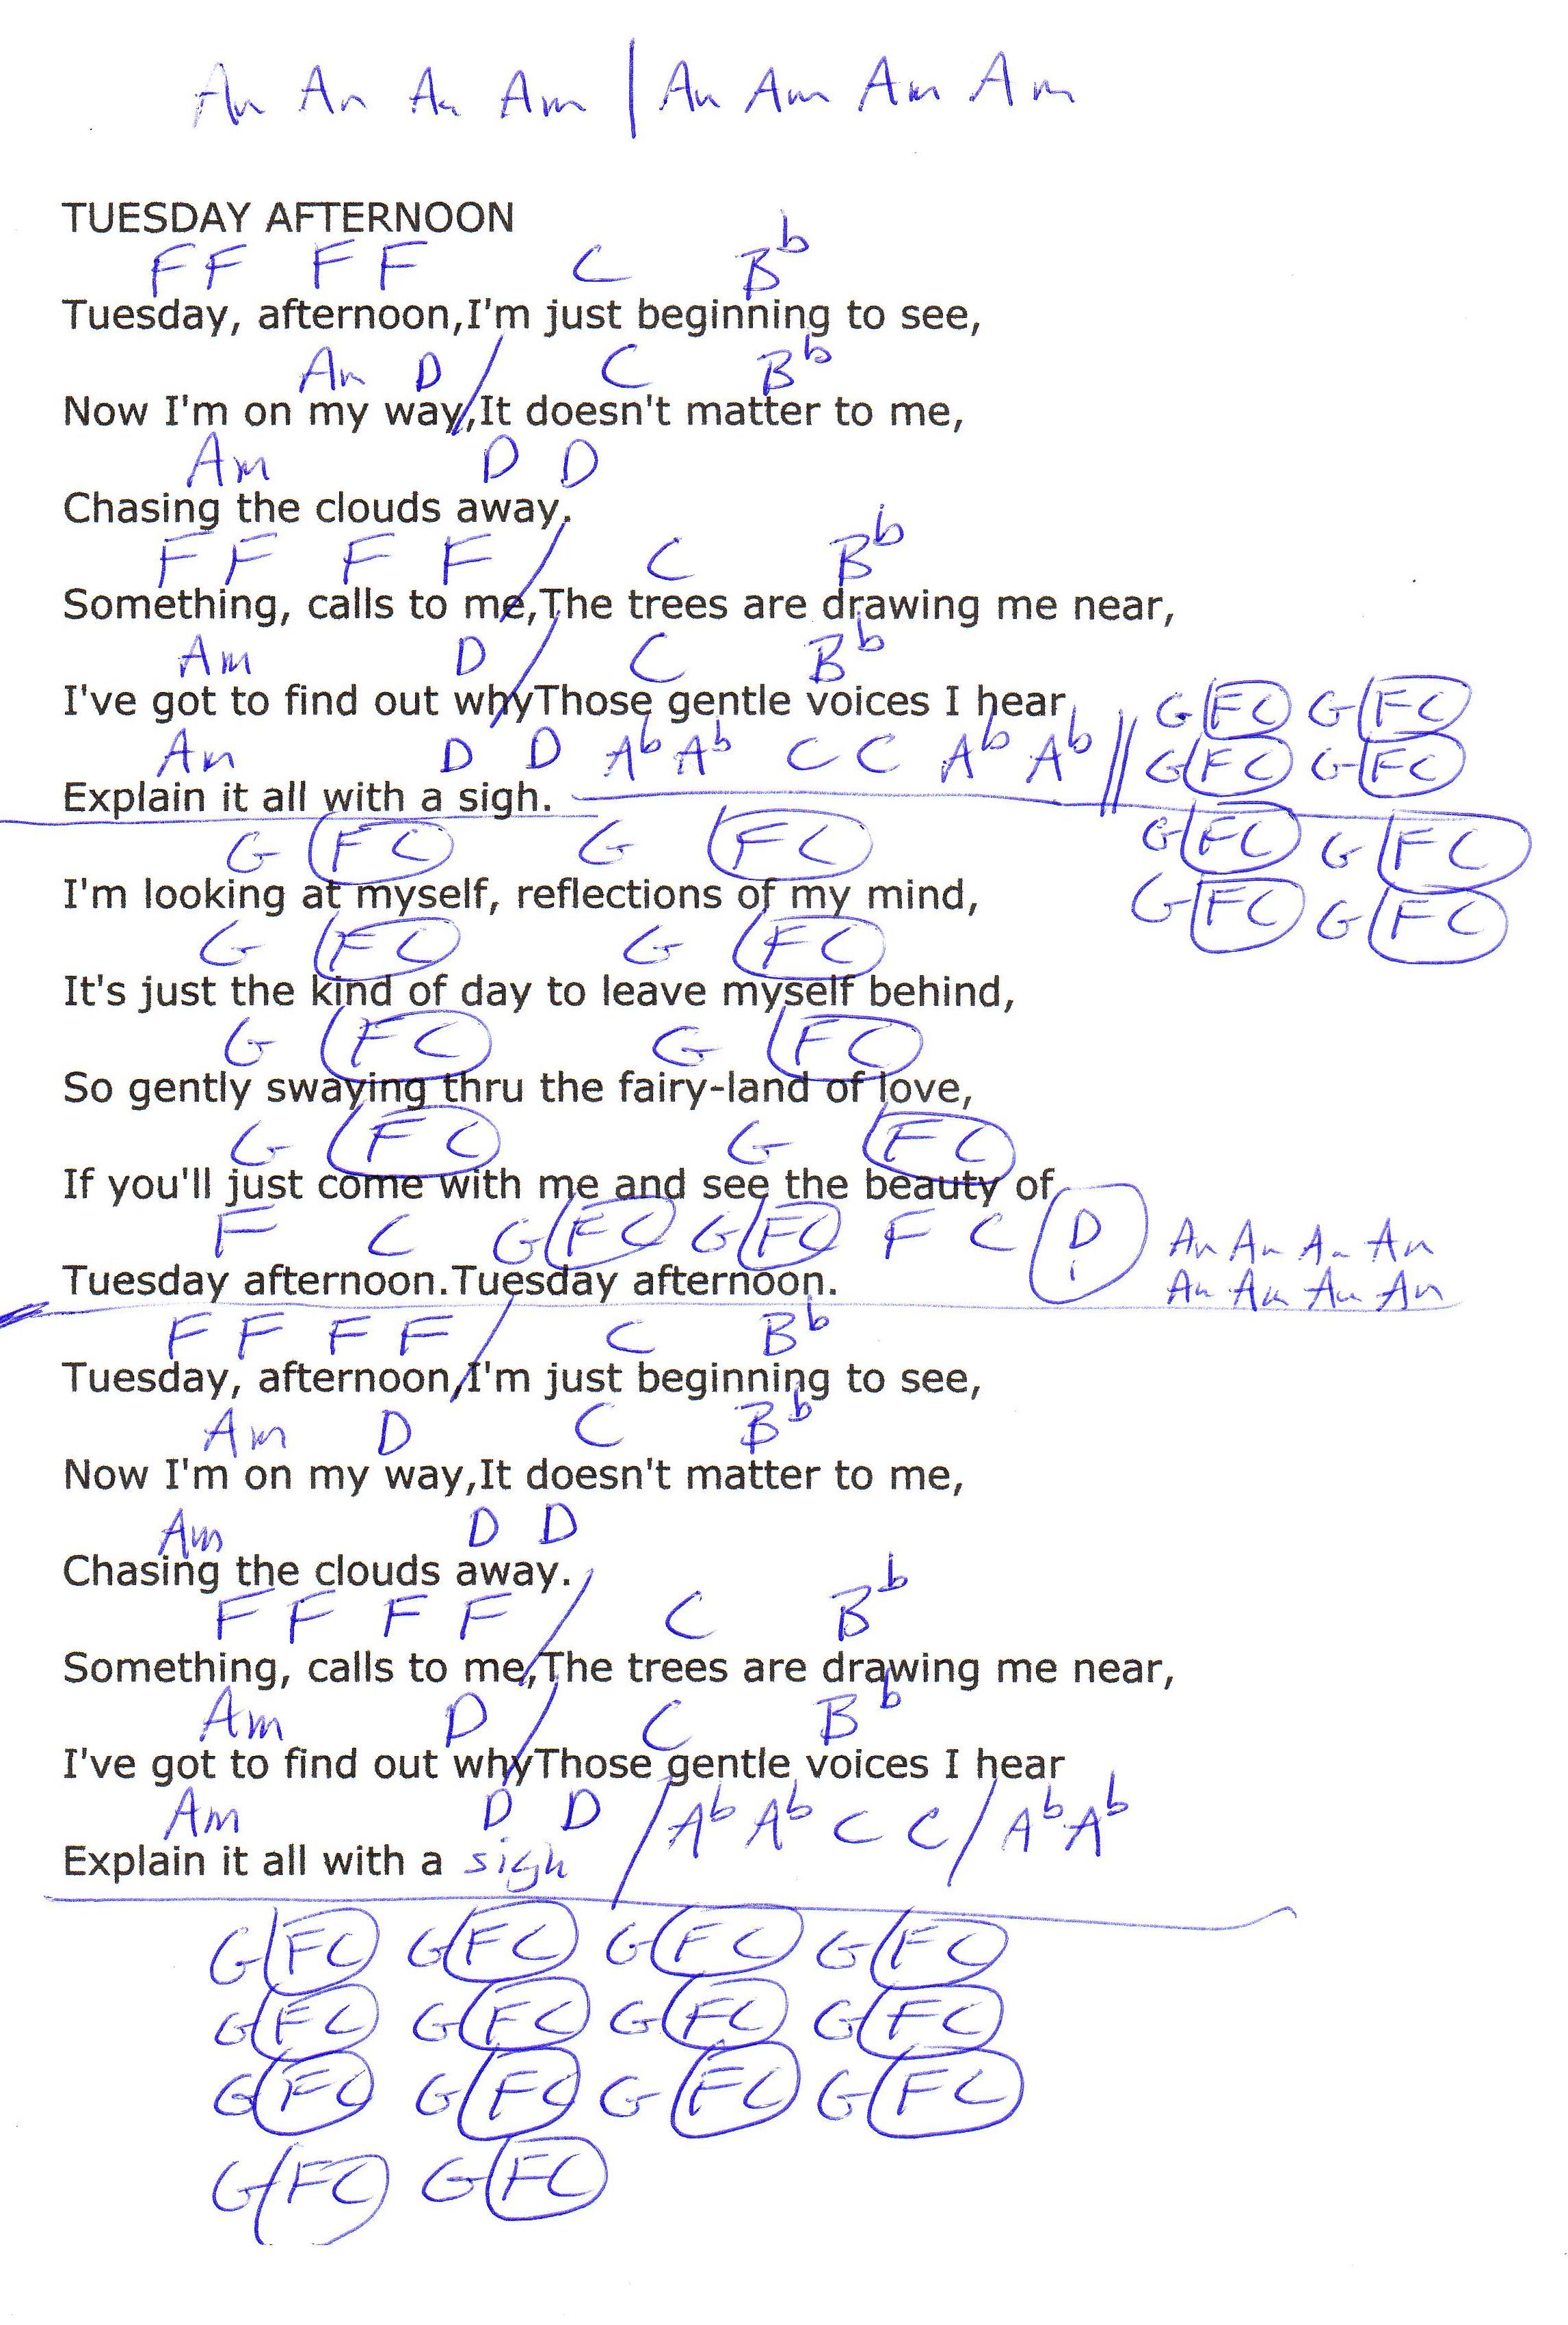 Am Am Am Am | Am Am Am Am
TUESDAY AFTERNOON
F F F F C Bb
Tuesday, afternoon,I'm just beginning to see,
Am D / C Bb
Now I'm on my way,It doesn't matter to me,
Am D D
Chasing the clouds away.
F F F F / C Bb
Something, calls to me,The trees are drawing me near,
Am D / C Bb
I've got to find out whyThose gentle voices I hear
G FC G FC
Am D D Ab Ab C C Ab Ab || G FC G FC
Explain it all with a sigh.
G FC G FC G FC G FC
I'm looking at myself, reflections of my mind,
G FC G FC
G FC G FC
It's just the kind of day to leave myself behind,
G FC G FC
So gently swaying thru the fairy-land of love,
G FC G FC
If you'll just come with me and see the beauty of
F C G FC G FC F C D Am Am Am Am
Tuesday afternoon.Tuesday afternoon.
Am Am Am Am
F F F F / C Bb
Tuesday, afternoon,I'm just beginning to see,
Am D C Bb
Now I'm on my way,It doesn't matter to me,
Am D D
Chasing the clouds away.
F F F F / C Bb
Something, calls to me,The trees are drawing me near,
Am D / C Bb
I've got to find out whyThose gentle voices I hear
Am D D / Ab Ab C C / Ab Ab
Explain it all with a sigh
G FC G FC G FC G FC
G FC G FC G FC G FC
G FC G FC G FC G FC
G FC G FC